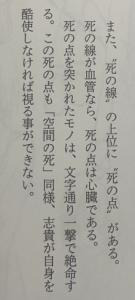 また、〝死の線〟の上位に〝死の点〟がある。
死の線が血管なら、死の点は心臓である。
死の点を突かれたモノは、文字通り一撃で絶命す
る。この死の点も「空間の死」同様、志貴が自身を
酷使しなければ視る事ができない。